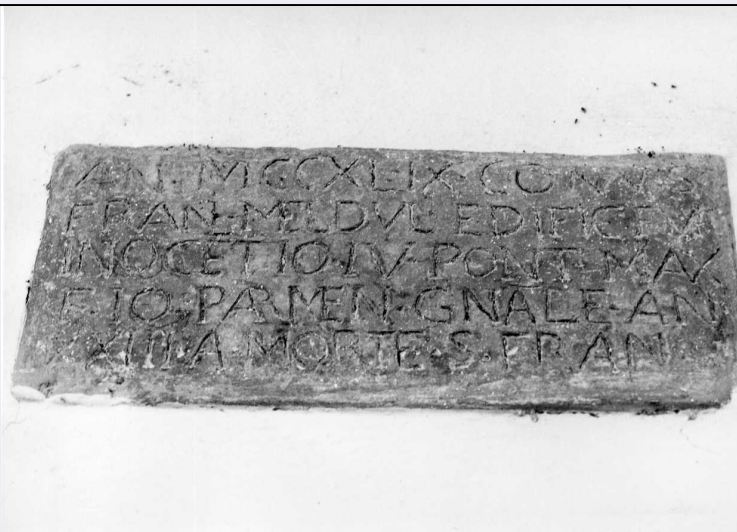 AN · MCCXLIX · CONVTS
FRAN · MEL DVL · EDIFICEM
INOCETIO · IV · PONT · MAX
F · IO · PARMEN · GNALE · AN
XXIII · A · MORTE · S · FRAN